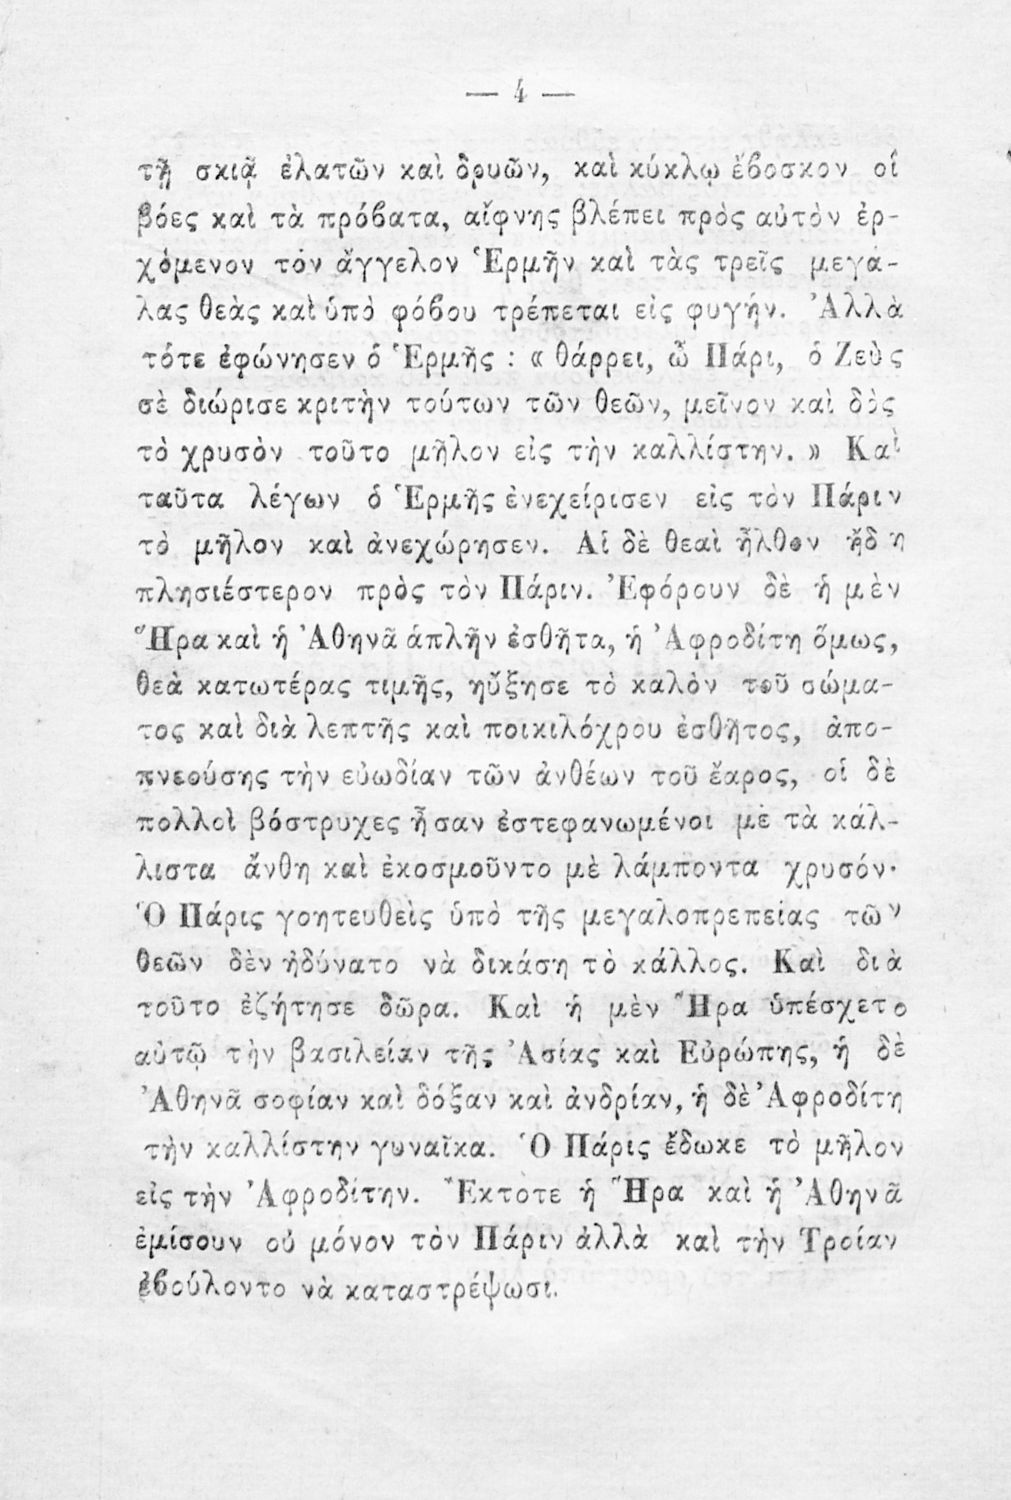 — 4 —
τῇ σκιᾷ ἐλατῶν καὶ δρυῶν, καὶ κύκλῳ ἔβοσκον οἱ
βόες καὶ τὰ πρόβατα, αἴφνης βλέπει πρὸς αὐτὸν ἐρ-
χόμενον τὸν ἄγγελον Ἑρμῆν καὶ τὰς τρεῖς μεγά-
λας θεὰς καὶ ὑπὸ φόβου τρέπεται εἰς φυγήν. Ἀλλὰ
τότε ἐφώνησεν ὁ Ἑρμῆς : « θάρρει, ὦ Πάρι, ὁ Ζεὺς
σὲ διώρισε κριτὴν τούτων τῶν θεῶν, μεῖνον καὶ δὸς
τὸ χρυσὸν τοῦτο μῆλον εἰς τὴν καλλίστην. » Καὶ
ταῦτα λέγων ὁ Ἑρμῆς ἐνεχείρισεν εἰς τὸν Πάριν
τὸ μῆλον καὶ ἀνεχώρησεν. Αἱ δὲ θεαὶ ἦλθον ἤδη
πλησιέστερον πρὸς τὸν Πάριν. Ἐφόρουν δὲ ἡ μὲν
Ἥρα καὶ ἡ Ἀθηνᾶ ἁπλῆν ἐσθῆτα, ἡ Ἀφροδίτη ὅμως,
θεὰ κατωτέρας τιμῆς, ηὔξησε τὸ καλὸν τοῦ σώμα-
τος καὶ διὰ λεπτῆς καὶ ποικιλόχρου ἐσθῆτος, ἀπο-
πνεούσης τὴν εὐωδίαν τῶν ἀνθέων τοῦ ἔαρος, οἱ δὲ
πολλοὶ βόστρυχες ἦσαν ἐστεφανωμένοι μὲ τὰ κάλ-
λιστα ἄνθη καὶ ἐκοσμοῦντο μὲ λάμποντα χρυσόν·
Ὁ Πάρις γοητευθεὶς ὑπὸ τῆς μεγαλοπρεπείας τῶν
θεῶν δὲν ἠδύνατο νὰ δικάσῃ τὸ κάλλος. Καὶ διὰ
τοῦτο ἐζήτησε δῶρα. Καὶ ἡ μὲν Ἥρα ὑπέσχετο
αὐτῷ τὴν βασιλείαν τῆς Ἀσίας καὶ Εὐρώπης, ἡ δὲ
Ἀθηνᾶ σοφίαν καὶ δόξαν καὶ ἀνδρίαν, ἡ δὲ Ἀφροδίτη
τὴν καλλίστην γυναῖκα. Ὁ Πάρις ἔδωκε τὸ μῆλον
εἰς τὴν Ἀφροδίτην. Ἔκτοτε ἡ Ἥρα καὶ ἡ Ἀθηνᾶ
ἐμίσουν οὐ μόνον τὸν Πάριν ἀλλὰ καὶ τὴν Τροίαν
ἐβούλοντο νὰ καταστρέψωσι.